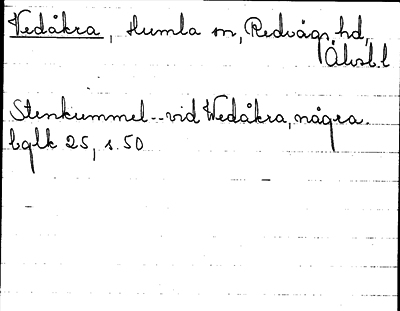 Vedåkra, Humla sn, Redvägs hd,
Älvsb.l
Stenkummel -- vid Wedåkra, några.
bglk 25, s. 50